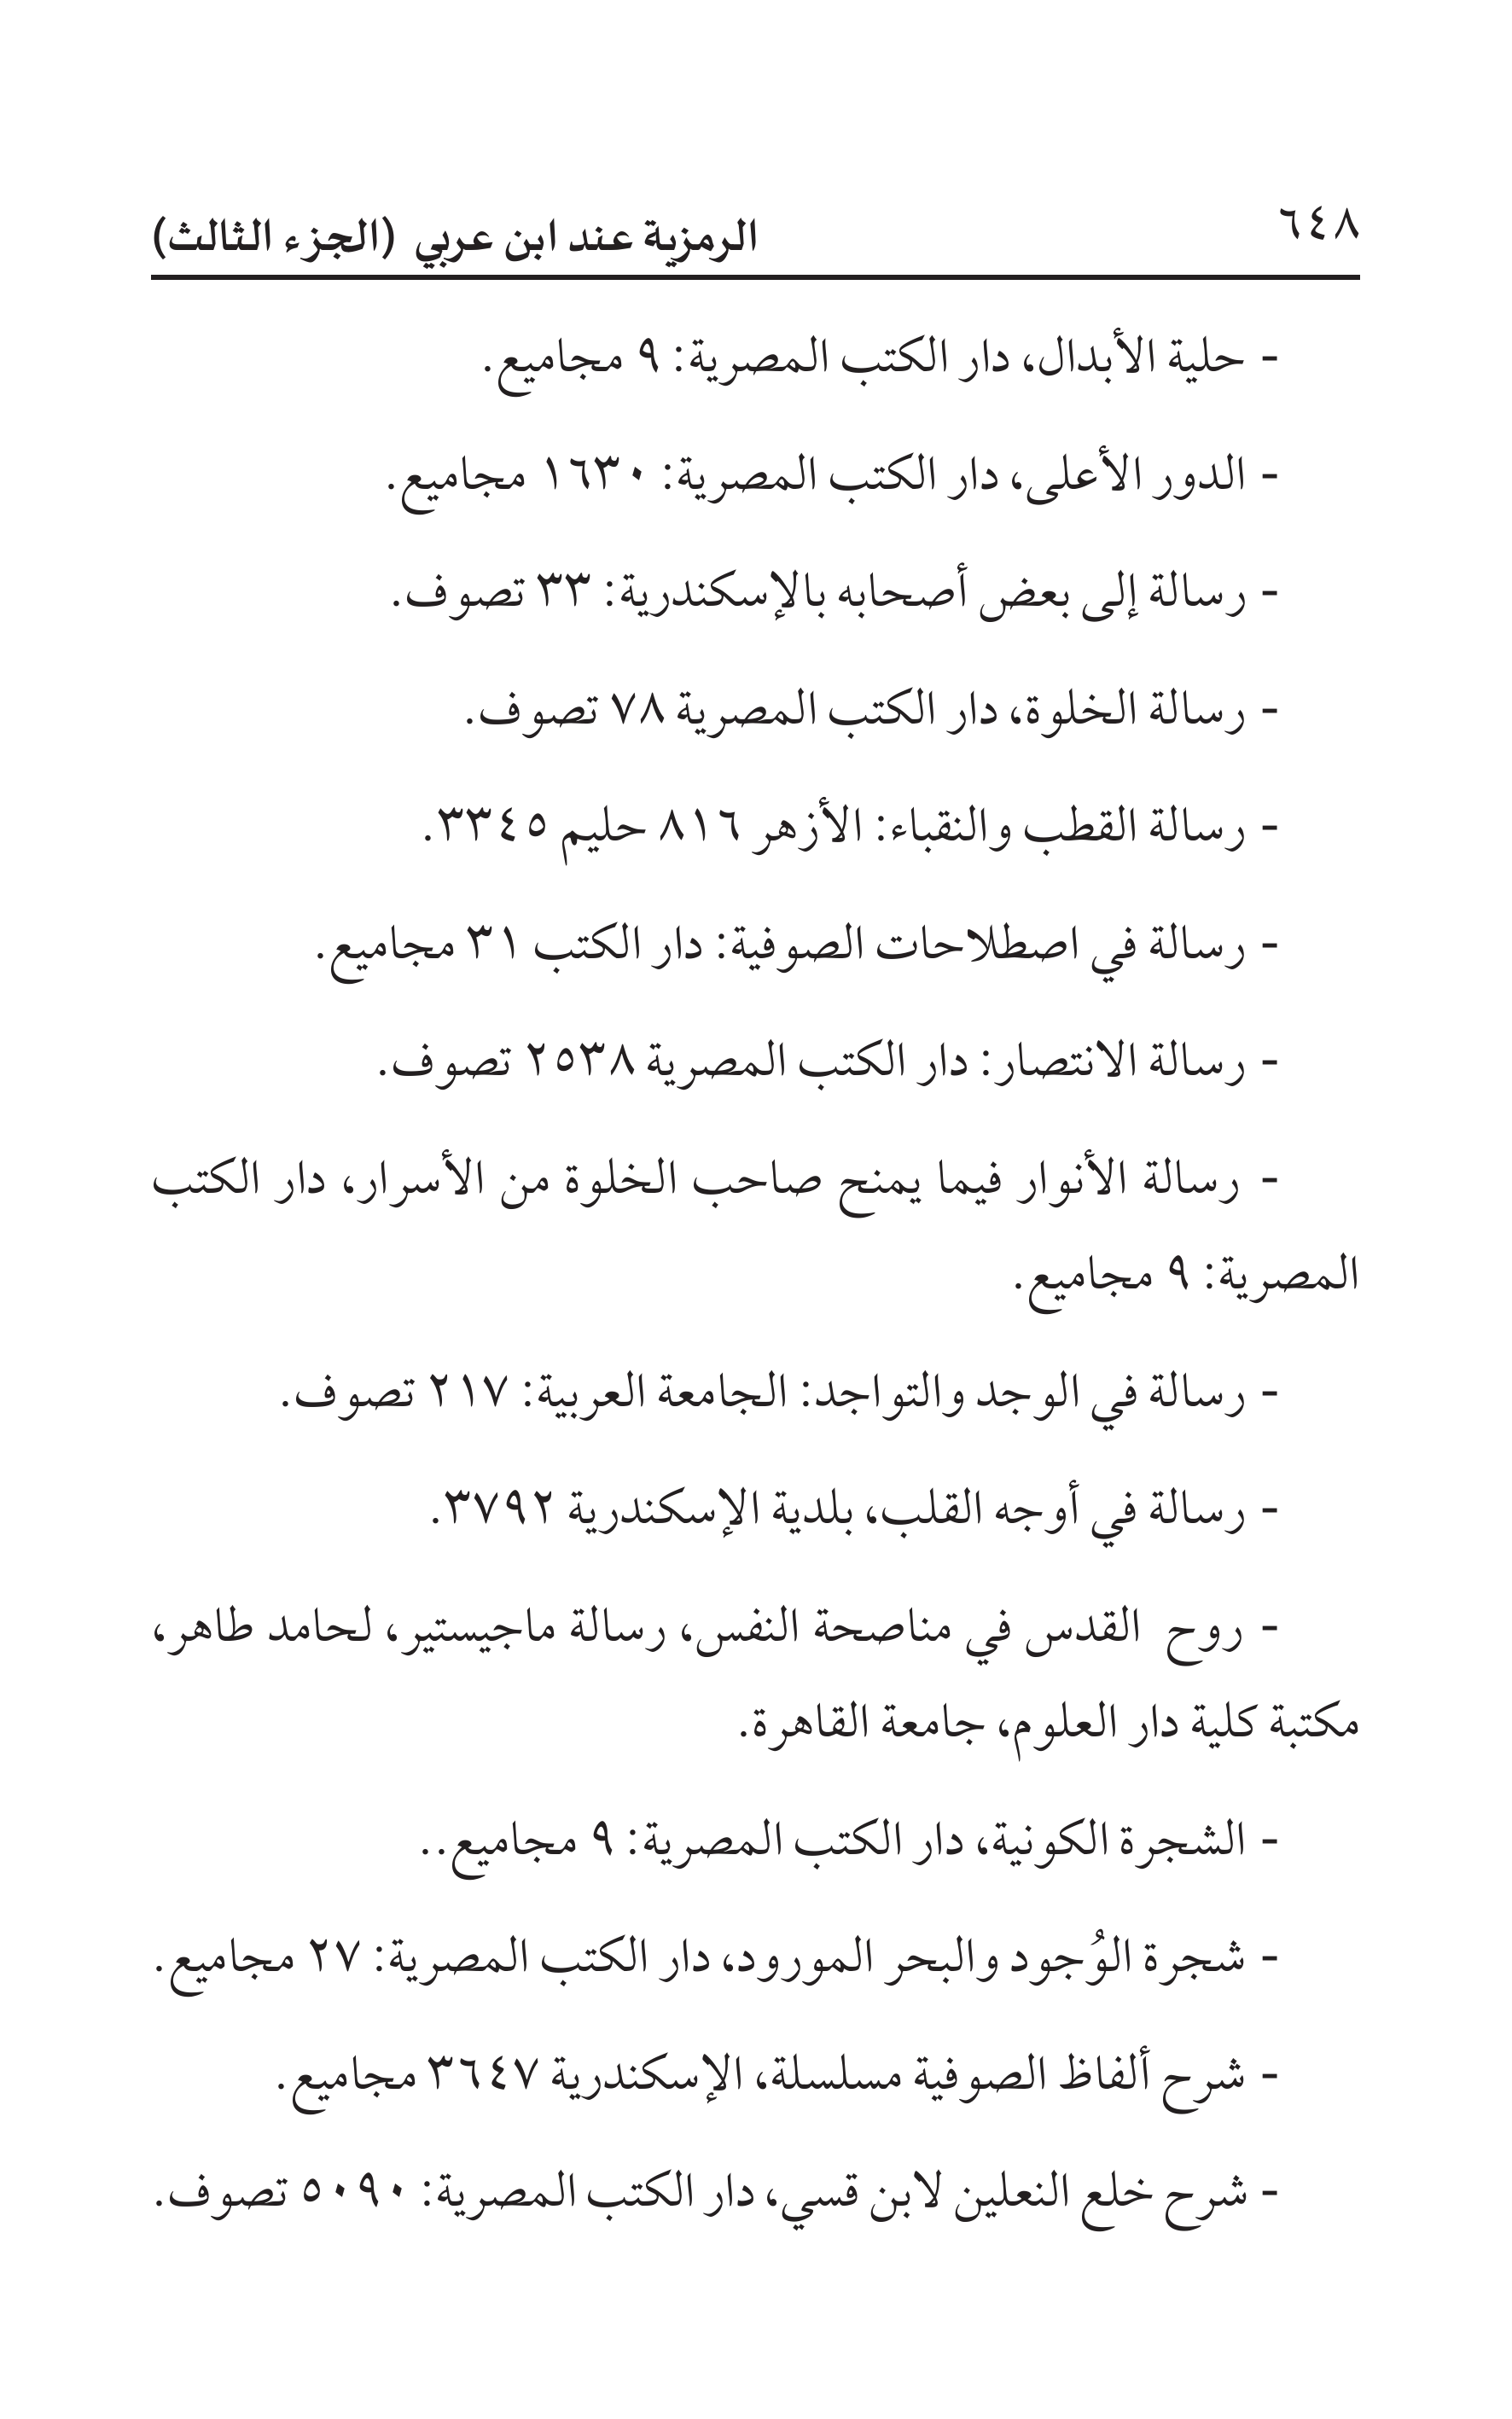 ٦٤٨
الرمزية عند ابن عربي (الجزء الثالث)
- حلية الأبدال، دار الكتب المصرية: ٩ مجاميع.
- الدور الأعلى، دار الكتب المصرية: ١٦٣٠ مجاميع.
- رسالة إلى بعض أصحابه بالإسكندرية: ٣٣ تصوف.
- رسالة الخلوة، دار الكتب المصرية ٧٨ تصوف.
- رسالة القطب والنقباء: الأزهر ٨١٦ حليم ٣٣٤٥.
- رسالة في اصطلاحات الصوفية: دار الكتب ٣١ مجاميع.
- رسالة الانتصار: دار الكتب المصرية ٢٥٣٨ تصوف.
- رسالة الأنوار فيما يمنح صاحب الخلوة من الأسرار، دار الكتب
المصرية: ٩ مجاميع.
- رسالة في الوجد والتواجد: الجامعة العربية: ٢١٧ تصوف.
- رسالة في أوجه القلب، بلدية الإسكندرية ٣٧٩٢.
- روح القدس في مناصحة النفس، رسالة ماجيستير، لحامد طاهر،
مكتبة كلية دار العلوم، جامعة القاهرة.
- الشجرة الكونية، دار الكتب المصرية: ٩ مجاميع..
- شجرة الوُجود والبحر المورود، دار الكتب المصرية: ٢٧ مجاميع.
- شرح ألفاظ الصوفية مسلسلة، الإسكندرية ٣٦٤٧ مجاميع.
- شرح خلع النعلين لابن قسي، دار الكتب المصرية: ٥٠٩٠ تصوف.